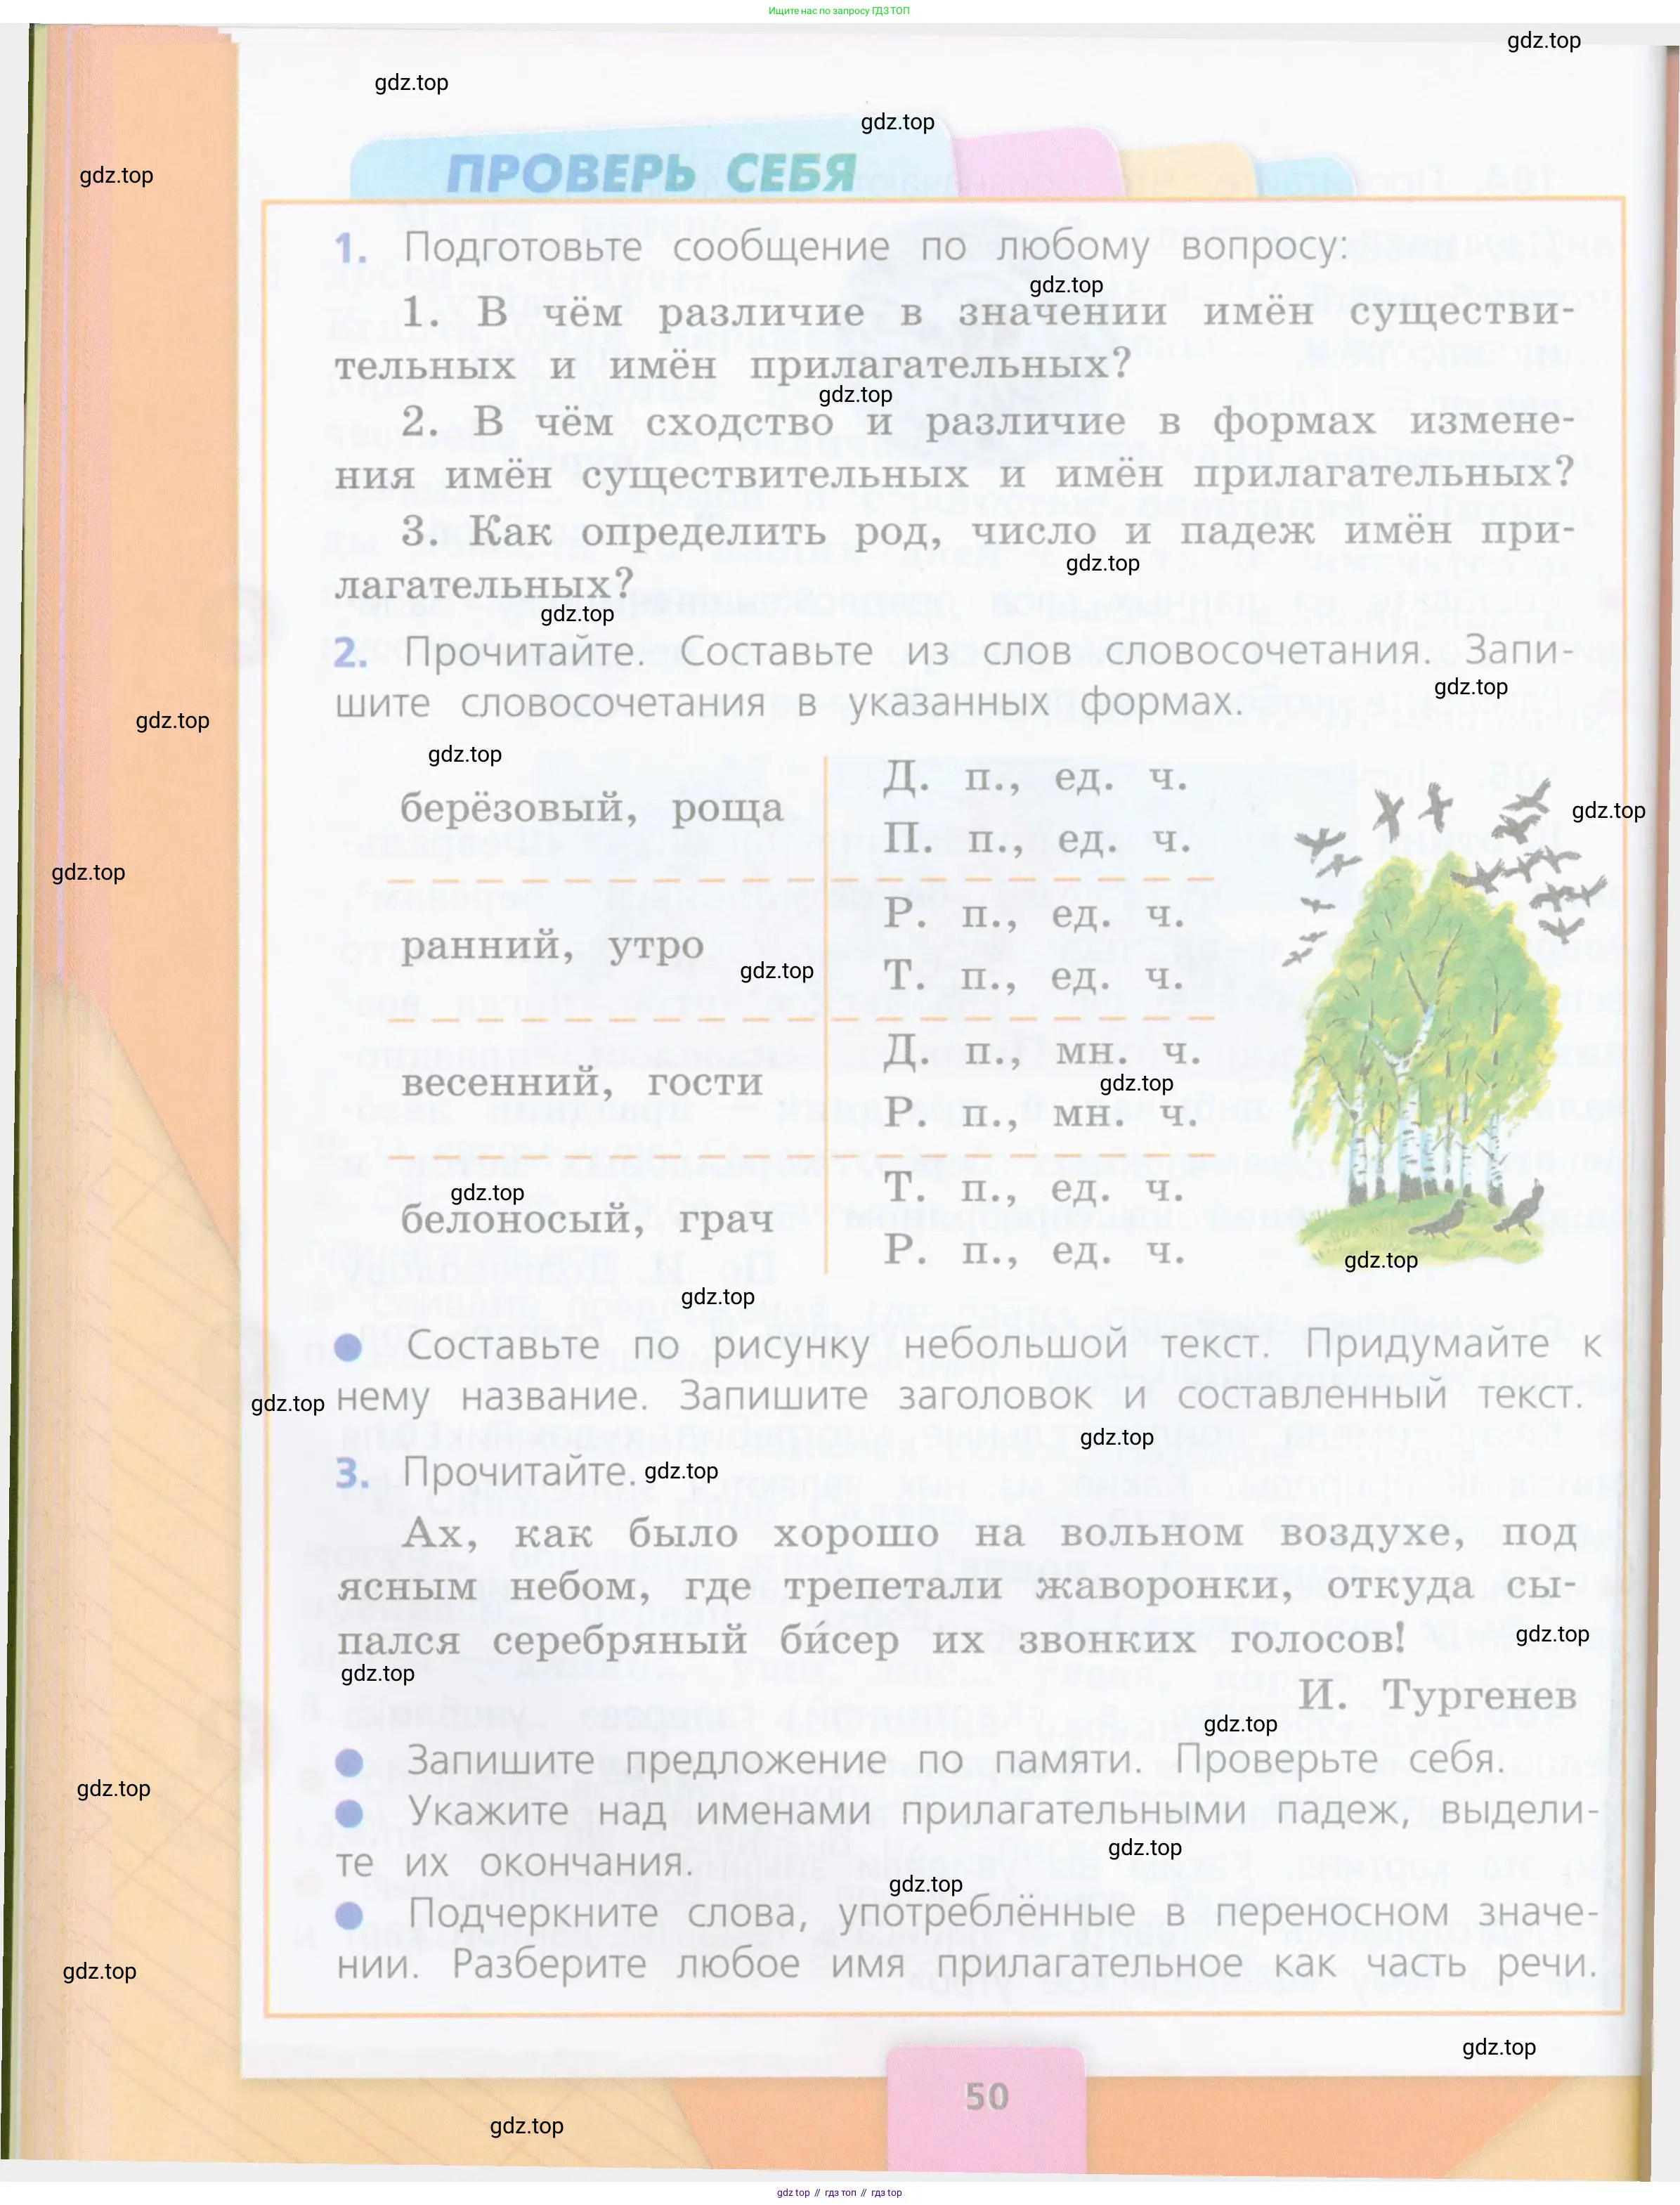 Ищите нас по запросу ГДЗ ТОП
gdz.top
gdz.top
gdz.top
gdz.top
ПРОВЕРЬ СЕБЯ
1. Подготовьте сообщение по любому вопросу:
gdz.top
1. В чём различие в значении имён существи-
тельных и имён прилагательных?
gdz.top
2. В чём сходство и различие в формах измене-
ния имён существительных и имён прилагательных?
3. Как определить род, число и падеж имён при-
gdz.top
лагательных?
gdz.top
2. Прочитайте. Составьте из слов словосочетания. Запи-
gdz.top
шите словосочетания в указанных формах.
gdz.top
gdz.top
Д. п., ед. ч.
берёзовый, роща
gdz.top
П. п., ед. ч.
gdz.top
Р. п., ед. ч.
ранний, утро
gdz.top
Т. п., ед. ч.
Д. п., мн. ч.
весенний, гости
gdz.top
Р. п., мн. ч.
gdz.top
Т. п., ед. ч.
белоносый, грач
Р. п., ед. ч.
gdz.top
gdz.top
Составьте по рисунку небольшой текст. Придумайте к
gdz.top
нему название. Запишите заголовок и составленный текст.
gdz.top
3. Прочитайте.
gdz.top
Ах, как было хорошо на вольном воздухе, под
ясным небом, где трепетали жаворонки, откуда сы-
пался серебряный би́сер их звонких голосов!
gdz.top
gdz.top
И. Тургенев
gdz.top
Запишите предложение по памяти. Проверьте себя.
gdz.top
Укажите над именами прилагательными падеж, выдели-
gdz.top
те их окончания.
gdz.top
Подчеркните слова, употреблённые в переносном значе-
нии. Разберите любое имя прилагательное как часть речи.
gdz.top
gdz.top
50
gdz.top
gdz top // гдз топ // гдз top